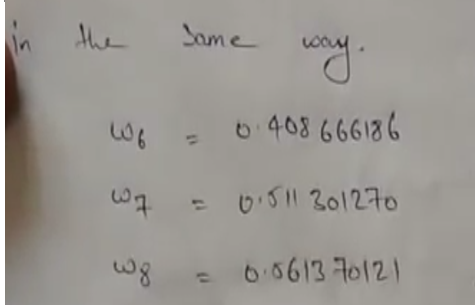 in the same way.
ω6 = 0.408666186
ω7 = 0.511301270
ω8 = 0.561370121